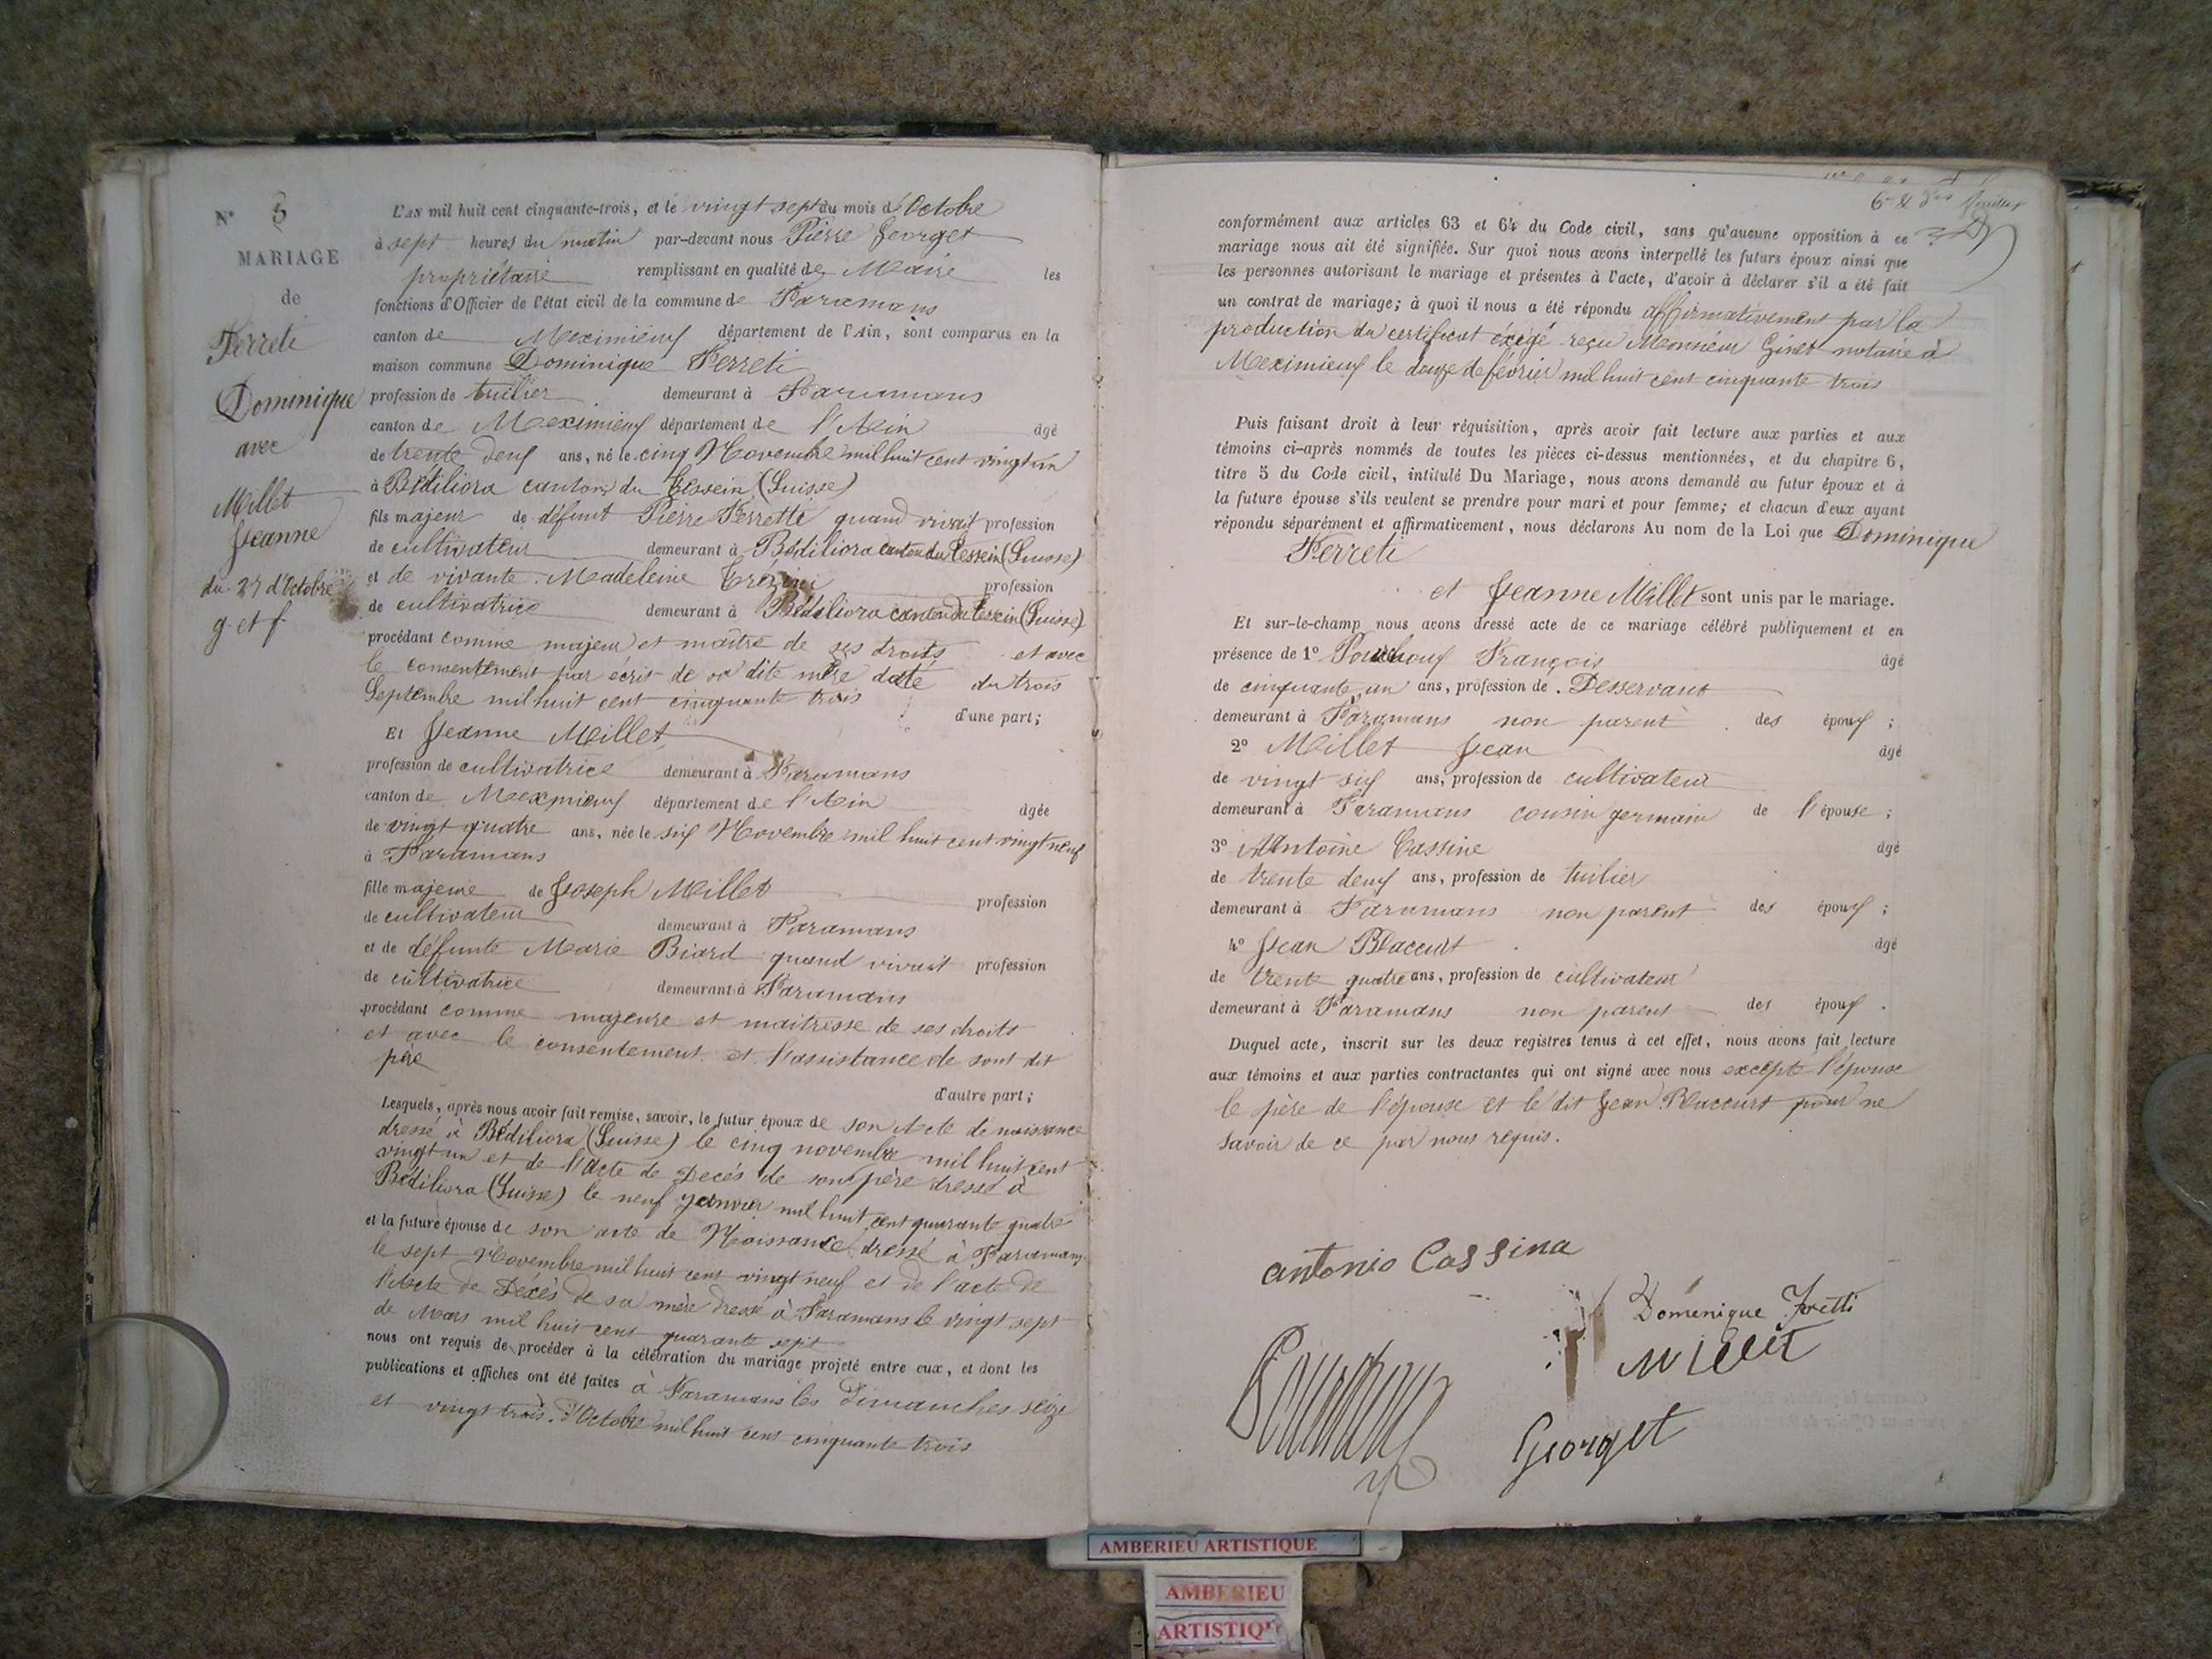 N° 5
MARIAGE
de
Ferreti
Dominique
avec
Millet
Jeanne
du 27 d'Octobre
g. et f.
L'AN mil huit cent cinquante-trois, et le vingt sept du mois d'Octobre
à sept heures du matin par-devant nous Pierre Georget
propriétaire remplissant en qualité de Maire les
fonctions d'Officier de l'état civil de la commune de Faramans
canton de Meximieux département de l'Ain, sont comparus en la
maison commune Dominique Ferreti
profession de tuilier demeurant à Faramans
canton de Meximieux département de l'Ain âgé
de trente deux ans, né le cinq Novembre mil huit cent vingt un
à Bédiliora canton du Tessein (Suisse)
fils majeur de défunt Pierre Ferretti quand vivait profession
de cultivateur demeurant à Bédiliora canton du Tessein (Suisse)
et de vivante Madeleine profession
de cultivatrice demeurant à Bédiliora canton du Tessein (Suisse)
procédant comme majeur et maître de ses droits et avec
le consentement par écrit de sa dite mère daté du trois
Septembre mil huit cent cinquante trois
d'une part;
Et Jeanne Millet
profession de cultivatrice demeurant à Faramans
canton de Meximieux département de l'Ain âgée
de vingt quatre ans, née le six Novembre mil huit cent vingt neuf
à Faramans
fille majeure de Joseph Millet profession
de cultivateur demeurant à Faramans
et de défunte Marie Biard quand vivait profession
de cultivatrice demeurant à Faramans
procédant comme majeure et maitresse de ses droits
et avec le consentement et l'assistance de sont dit
père
d'autre part;
Lesquels, après nous avoir fait remise, savoir, le futur époux de son Acte de naissance
dressé à Bédiliora (Suisse) le cinq novembre mil huit cent
vingt un et de l'Acte de Decés de son père dressé à
Bédiliora (Suisse) le neuf Janvier mil huit cent quarante quatre
et la future épouse de son acte de Naissance dressé à Faramans
le sept Novembre mil huit cent vingt neuf et de l'acte de
l'Acte de Décès de sa mère dressé à Faramans le vingt sept
de Mars mil huit cent quarante sept
nous ont requis de procéder à la célébration du mariage projeté entre eux, et dont les
publications et affiches ont été faites à Faramans les Dimanches seize
et vingt trois d'Octobre mil huit cent cinquante trois
conformément aux articles 63 et 64 du Code civil, sans qu'aucune opposition à ce
mariage nous ait été signifiée. Sur quoi nous avons interpellé les futurs époux ainsi que
les personnes autorisant le mariage et présentes à l'acte, d'avoir à déclarer s'il a été fait
un contrat de mariage; à quoi il nous a été répondu affirmativement par la
production du certificat éxigé reçu Monsieur Ginet notaire à
Meximieux le douze de février mil huit cent cinquante trois
Puis faisant droit à leur réquisition, après avoir fait lecture aux parties et aux
témoins ci-après nommés de toutes les pièces ci-dessus mentionnées, et du chapitre 6,
titre 5 du Code civil, intitulé Du Mariage, nous avons demandé au futur époux et à
la future épouse s'ils veulent se prendre pour mari et pour femme; et chacun d'eux ayant
répondu séparément et affirmativement, nous déclarons Au nom de la Loi que Dominique
Ferreti
et Jeanne Millet sont unis par le mariage.
Et sur-le-champ nous avons dressé acte de ce mariage célébré publiquement et en
présence de 1° François âgé
de cinquante un ans, profession de Desservant
demeurant à Faramans non parent des époux ;
2° Millet Jean âgé
de vingt six ans, profession de cultivateur
demeurant à Faramans cousin germain de l'épouse ;
3° Antoine Cassine âgé
de trente deux ans, profession de tuilier
demeurant à Faramans non parent des époux ;
4° Jean Blaccurt âgé
de trente quatre ans, profession de cultivateur
demeurant à Faramans non parent des époux .
Duquel acte, inscrit sur les deux registres tenus à cet effet, nous avons fait lecture
aux témoins et aux parties contractantes qui ont signé avec nous excepté l'épouse
le père de l'épouse et le dit Jean Blaccurt pour ne
savoir de ce par nous requis.
antonio Cassina
Domenique
Millet
Georget
AMBERIEU ARTISTIQUE
AMBERIEU
ARTISTIQ